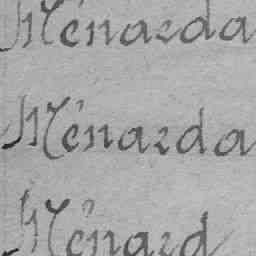 Ménarda
Ménarda
Ménard